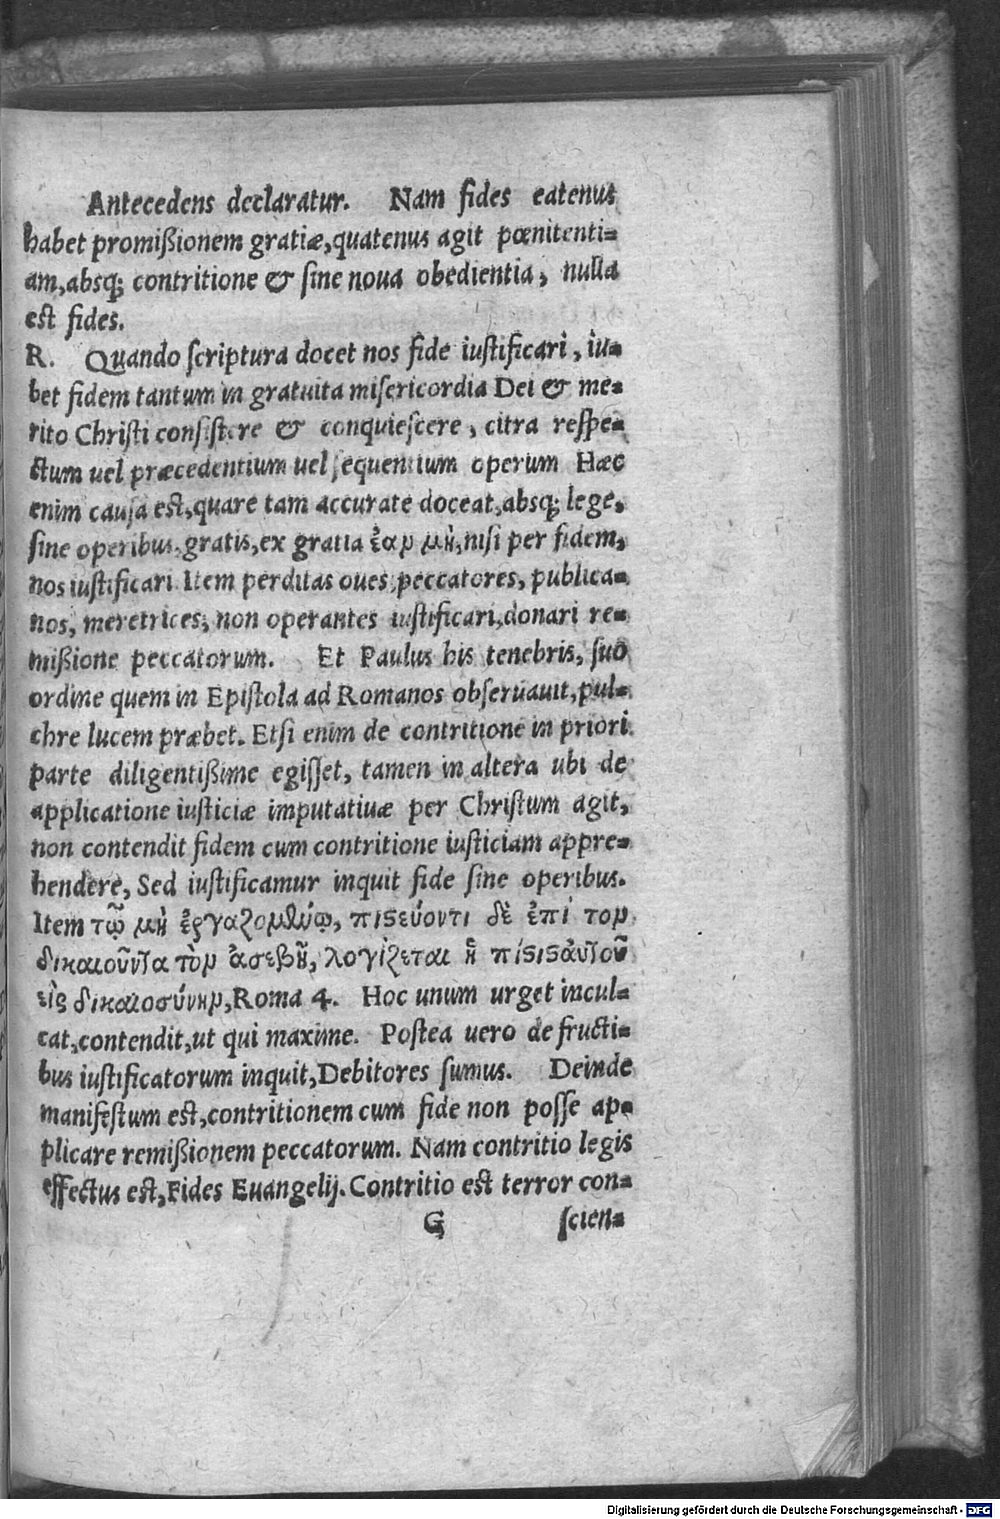 Antecedens declaratur. Nam fides eatenus
habet promißionem gratiæ,quatenus agit pœnitenti=
am,absq; contritione & sine noua obedientia, nulla
est fides.
R. Quando scriptura docet nos fide iustificari, iu=
bet fidem tantum in gratuita misericordia Dei & me=
rito Christi consistere & conquiescere, citra respe=
ctum uel præcedentium uel sequentium operum Hæc
enim causa est,quare tam accurate doceat,absq; lege,
sine operibus,gratis,ex gratia ἐαρ μὴ,nisi per fidem,
nos iustificari Item perditas oues,peccatores, publica=
nos, meretrices, non operantes iustificari,donari re=
mißione peccatorum. Et Paulus his tenebris, suo
ordine quem in Epistola ad Romanos obseruauit,pul=
chre lucem præbet. Etsi enim de contritione in priori
parte diligentißime egisset, tamen in altera ubi de
applicatione iusticiæ imputatiuæ per Christum agit,
non contendit fidem cum contritione iusticiam appre=
hendere, Sed iustificamur inquit fide sine operibus.
Item τῷ μὴ ἐργαζομένῳ, πιστεύοντι δὲ ἐπὶ τον
δικαιοῦντα τὸν ἀσεβῆ, λογίζεται ἡ πίστις ἀυτοῦ
εἰς δικαιοσύνην,Roma 4. Hoc unum urget incul=
cat,contendit,ut qui maxime. Postea uero de fructi=
bus iustificatorum inquit,Debitores sumus. Deinde
manifestum est,contritionem cum fide non posse ap=
plicare remißionem peccatorum. Nam contritio legis
effectus est,Fides Euangelij. Contritio est terror con=
G scien=
Digitalisierung gefördert durch die Deutsche Forschungsgemeinschaft - DFG